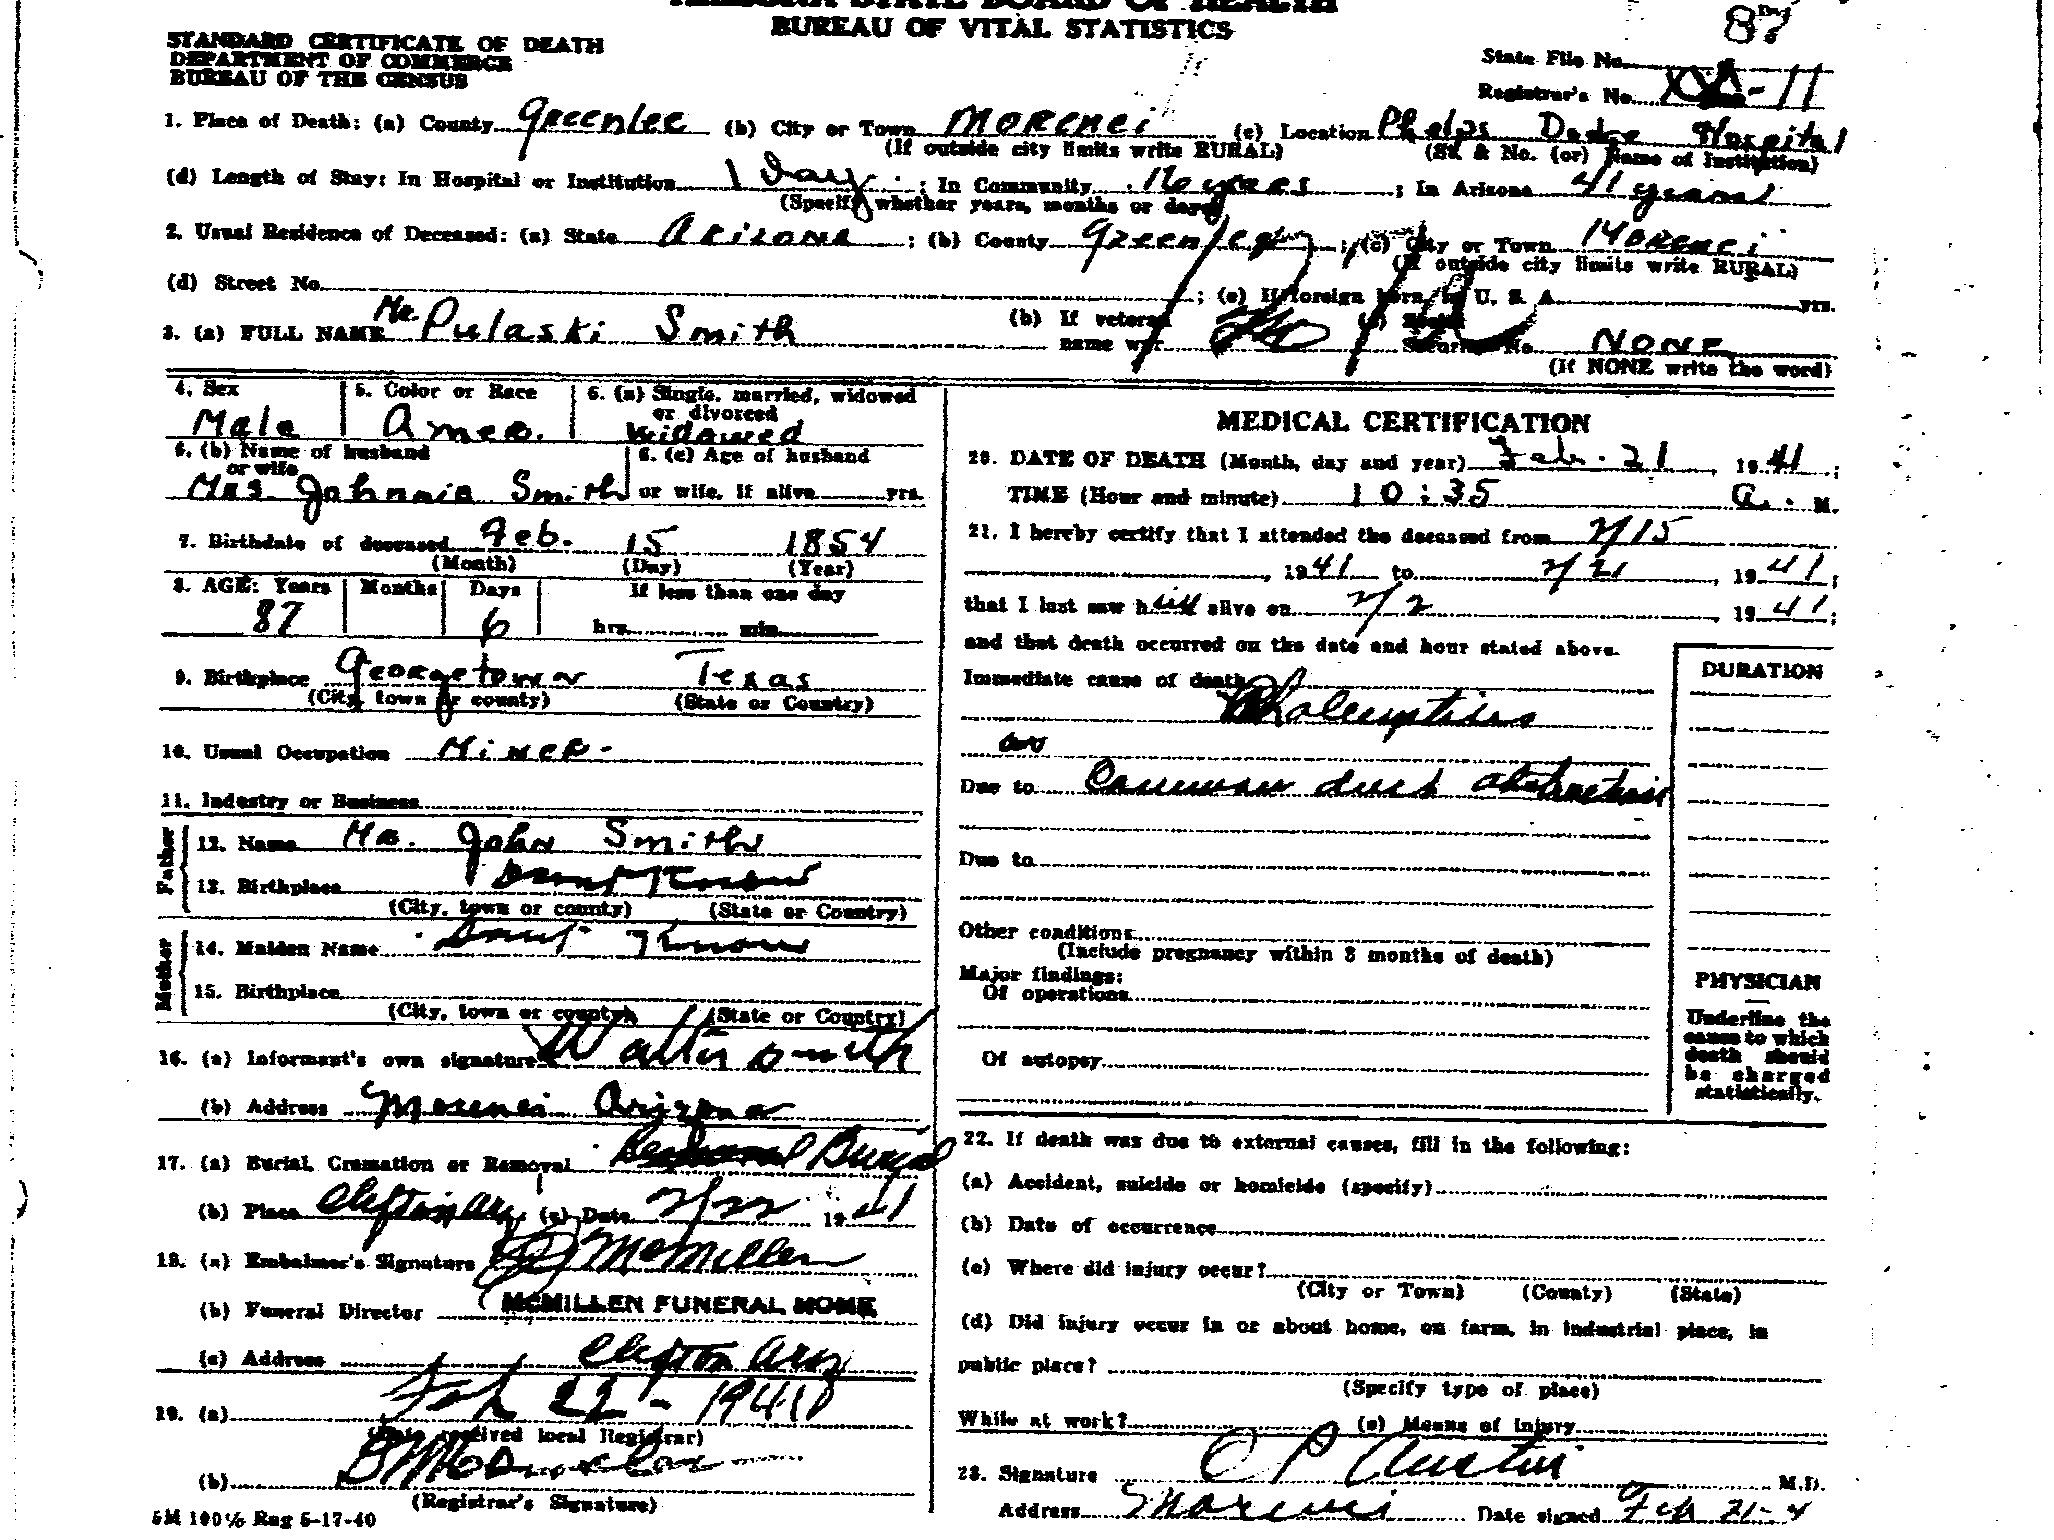 BUREAU OF VITAL STATISTICS
STANDARD CERTIFICATE OF DEATH
DEPARTMENT OF COMMERCE
BUREAU OF THE CENSUS
87
State File No.
Registrar's No. -11
1. Place of Death: (a) County Greenlee (b) City or Town Morenci (c) Location Phelps Dodge Hospital
(If outside city limits write RURAL) (St. & No. (or) Name of Institution)
(d) Length of Stay: In Hospital or Institution 1 Day ; In Community 16 years ; In Arizona 41 years
(Specify whether years, months or days)
2. Usual Residence of Deceased: (a) State Arizona ; (b) County Greenlee ; (c) City or Town Morenci
(If outside city limits write RURAL)
(d) Street No. ; (e) If foreign born, in U. S. A. yrs.
3. (a) FULL NAME Mr. Pulaski Smith (b) If veteran name war Security No. NONE
(If NONE write the word)
4. Sex Male 5. Color or Race Amer. 6. (a) Single, married, widowed or divorced Widowed
6. (b) Name of husband or wife Mrs. Johnnie Smith 6. (c) Age of husband or wife, if alive yrs.
7. Birthdate of deceased Feb. 15 1854
(Month) (Day) (Year)
8. AGE: Years Months Days If less than one day
87 6 hrs. min.
9. Birthplace Georgetown Texas
(City, town or county) (State or Country)
10. Usual Occupation Miner.
11. Industry or Business
Father
12. Name Mr. John Smith
13. Birthplace Dont Know
(City, town or county) (State or Country)
Mother
14. Maiden Name Dont Know
15. Birthplace
(City, town or county) (State or Country)
16. (a) Informant's own signature Walter Smith
(b) Address Morenci Arizona
17. (a) Burial, Cremation or Removal Burial
(b) Place Clifton Ariz. (c) Date 2/22 1941
18. (a) Embalmer's Signature McMillen
(b) Funeral Director McMILLEN FUNERAL HOME
(c) Address Clifton Ariz
19. (a) Feb 22 - 1941
(Date received local Registrar)
(b)
(Registrar's Signature)
5M 100% Rag 5-17-40
MEDICAL CERTIFICATION
20. DATE OF DEATH (Month, day and year) Feb. 21, 1941;
TIME (Hour and minute) 10:35 a. M.
21. I hereby certify that I attended the deceased from 2/15
, 1941 to 2/21, 1941;
that I last saw him alive on 2/2 1941;
and that death occurred on the date and hour stated above.
Immediate cause of death
DURATION
Due to Common duct obstruction
Due to
Other conditions
(Include pregnancy within 3 months of death)
Major findings:
Of operations
Of autopsy
PHYSICIAN
Underline the
cause to which
death should
be charged
statistically.
22. If death was due to external causes, fill in the following:
(a) Accident, suicide or homicide (specify)
(b) Date of occurrence
(c) Where did injury occur?
(City or Town) (County) (State)
(d) Did injury occur in or about home, on farm, in industrial place, in
public place?
(Specify type of place)
While at work? (e) Means of injury
23. Signature O P Austin M.D.
Address Morenci Date signed Feb 21-4